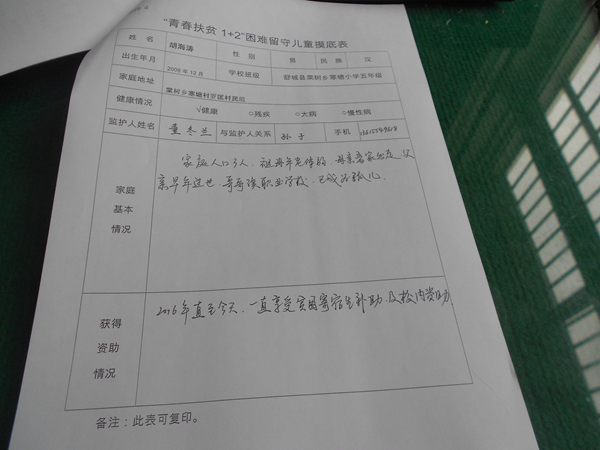 "青春扶贫 1+2"困难留守儿童摸底表
姓名 胡海涛 性别 男 民族 汉
出生年月 2008年12月 学校班级 舒城县棠树乡寒塘小学五年级
家庭地址 棠树乡寒塘村罗店村民组
健康情况 √健康 ○残疾 ○大病 ○慢性病
监护人姓名 董冬兰 与监护人关系 孙子 手机
家庭基本情况
家庭人口3人,祖母年老体弱,母亲离家出走,父
亲早年过世,哥哥读职业学校,已成为孤儿。
获得资助情况
2016年直至今天,一直享受贫困寄宿生补助及校内资助
备注:此表可复印。